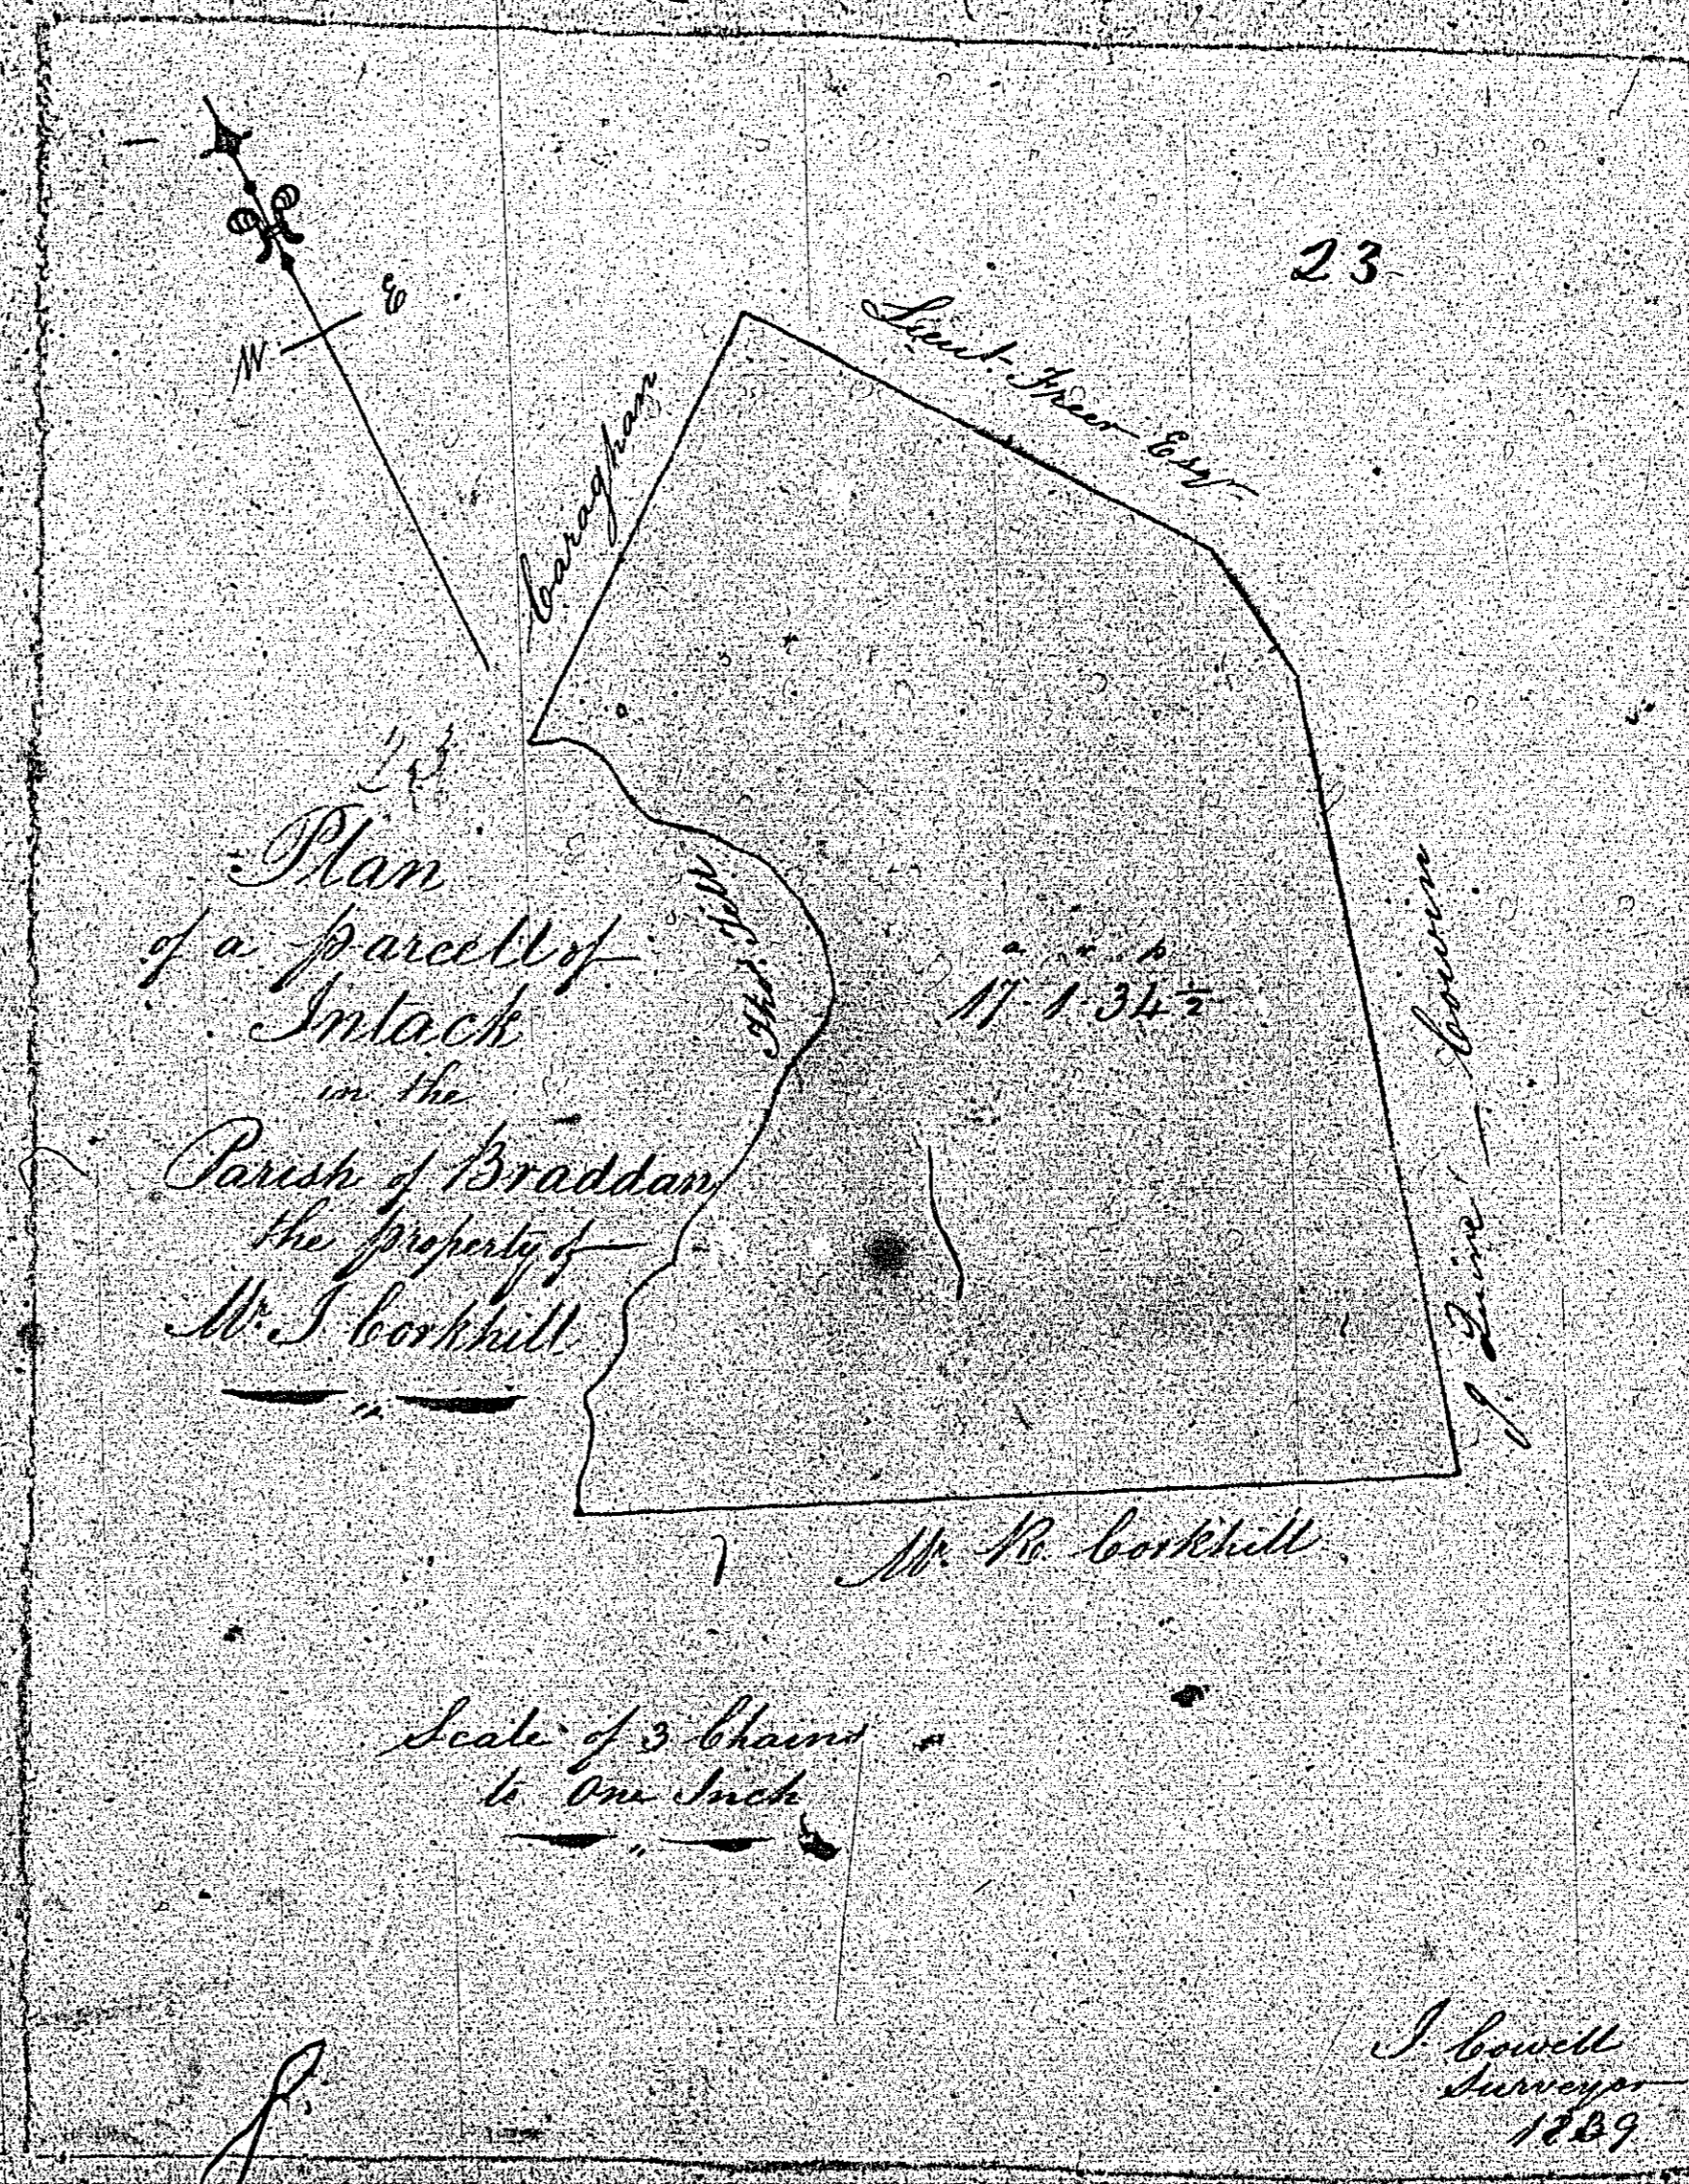 23
E
W
Caraghan
Lieut. Freer Esqr
23
Plan
of a parcell of
Intack
in the
Parish of Braddan
the property of
Mr. J. Corkhill
Thos. Fell
a r p
17-1-34½
J. Quine — Cowin
Mr. R. Corkhill
Scale of 3 Chains
to One Inch
J. Cowell
Surveyor
1839